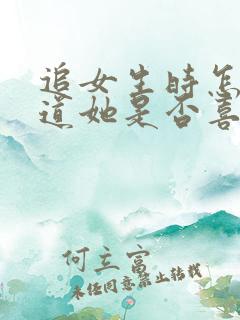 追女生时怎
道她是否喜
何立富
未经同意禁止转载